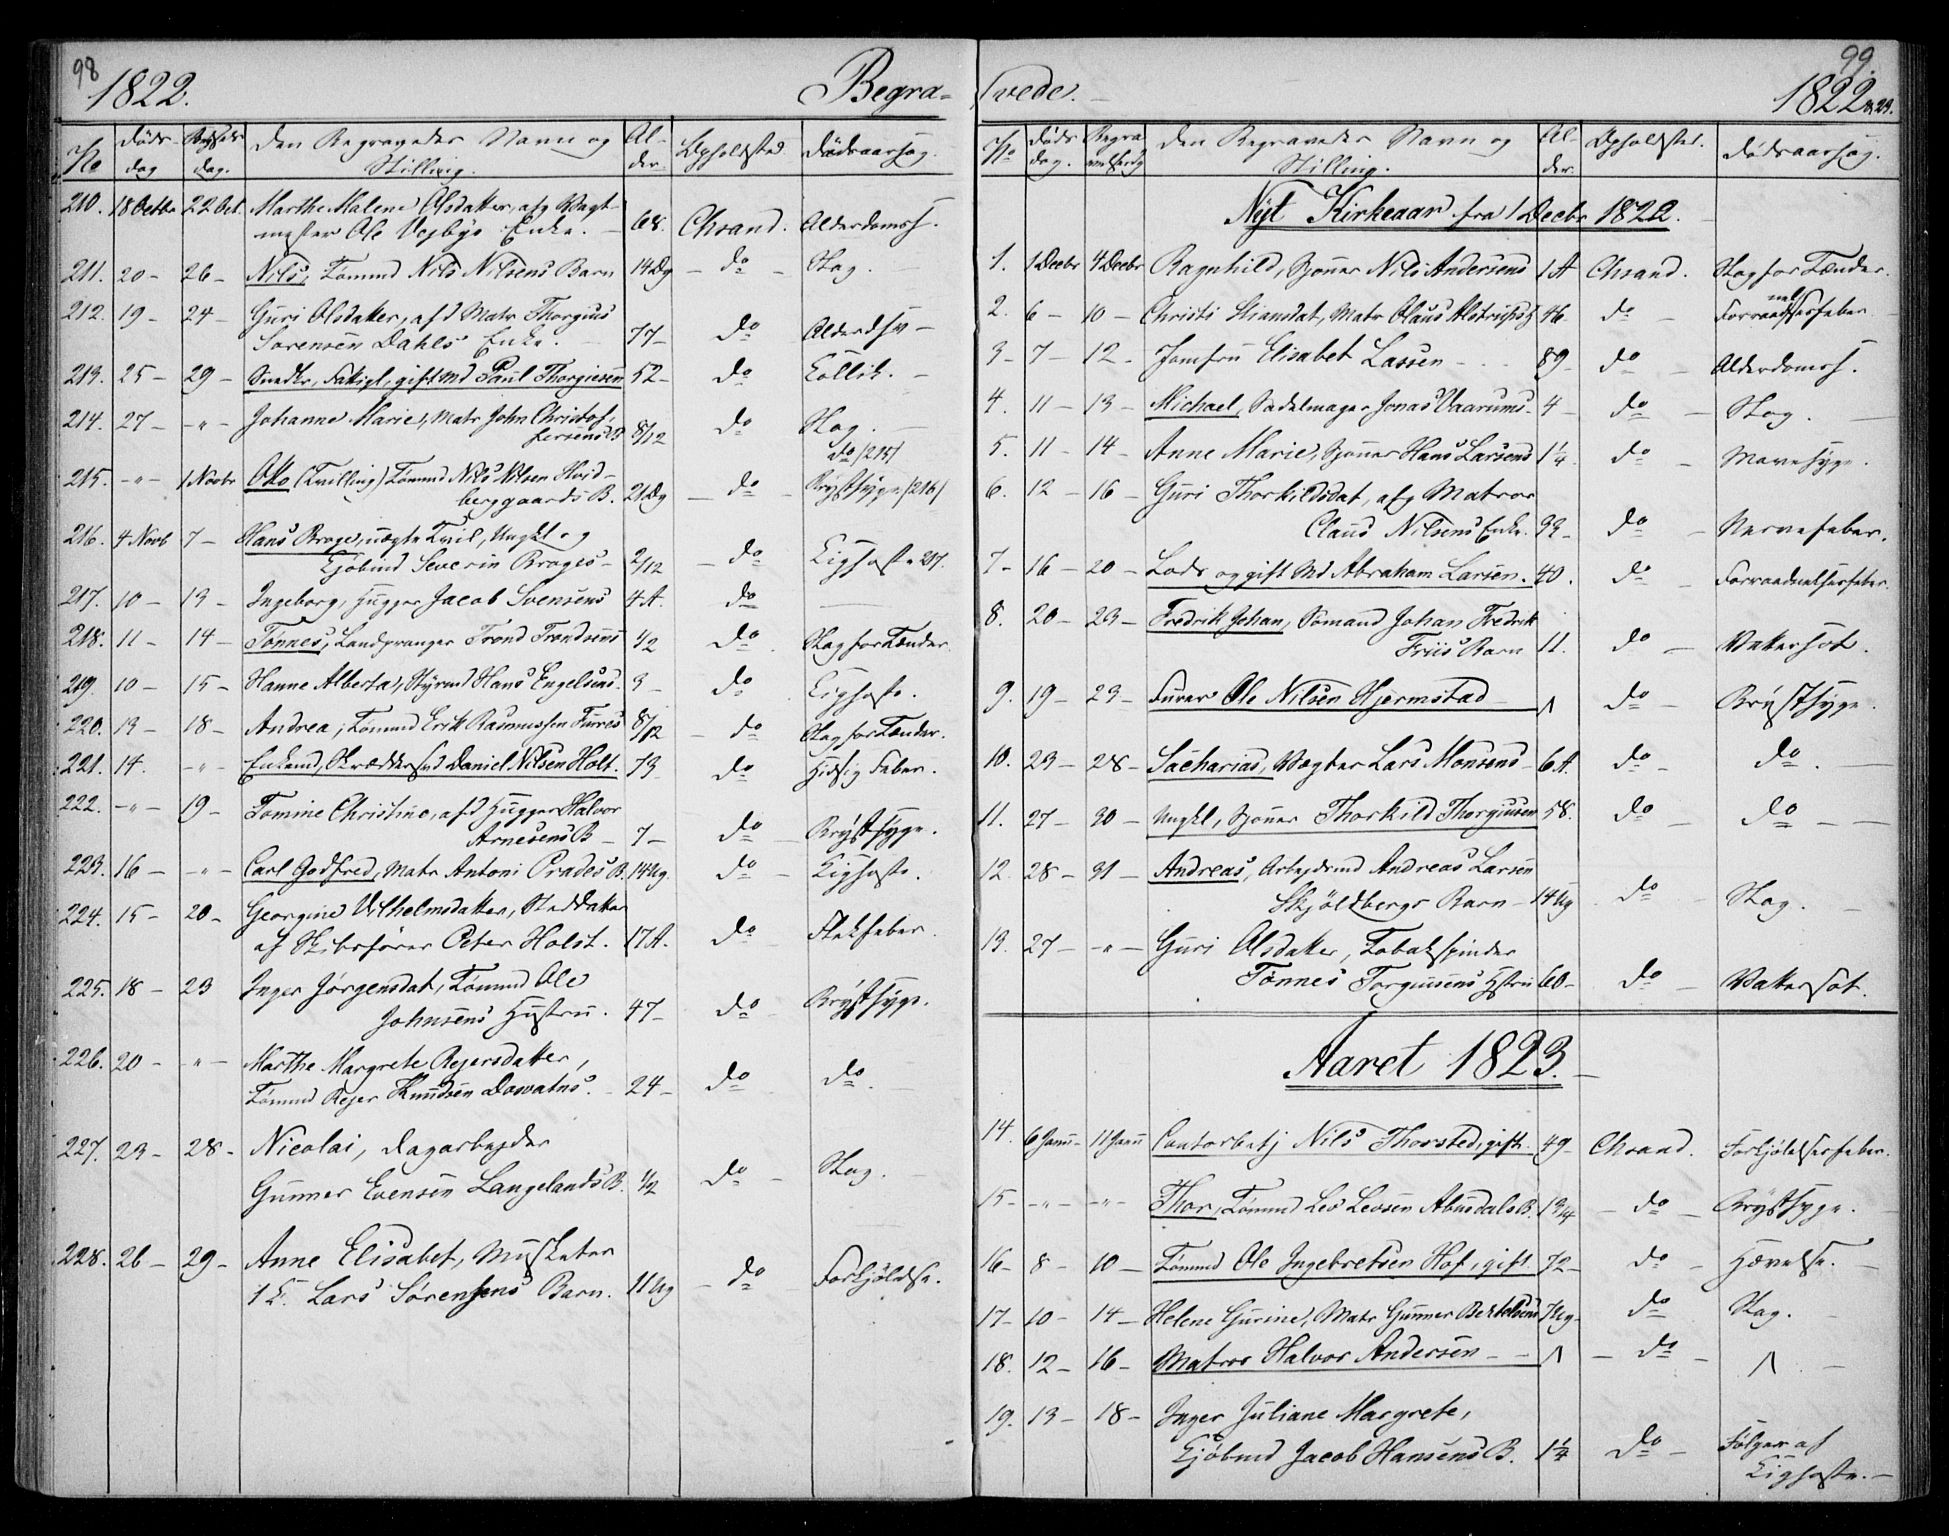 98
1822.
Begra-
No Døds- dag Begravelses dag. Den Begravedes Navn og Stilling. Al- der. Opholdsted Dødsaarsag.
210. 18 Octbr 22 Oct. Marthe Malene Olsdatter, afg Vagt-
mester Ole Vejbye Enke. 68. Chsand. Alderdomssv.
211. 20 - 26 - Nils, Tømmd Nils Nilsens Barn 14 Dg - do - Slag.
212. 19 - 24 - Guri Olsdatter, afd Matr Thorgius
Sorensen Dahls Enke. 77 - do Alderdsv -
213. 25 - 29 - Snedkr, Fattigl, gift Md Paul Thorgiesen 52 - do Collik. -
214. 27 - - " - Johanne Marie, Matr John Christof-
fersens B 8/12 do Slag.
do /215/
215. - " - 1 Novbr Otto (Tvilling) Tømmd Nils Nilsen Hvid-
berggaards B. 21 Dg - do - Brystsyge /216/
216. 4 Novb 7 - Hans Brage, uægte Tvil, Ungkl og
Kjøbmd Severin Brages - 2/12 - do Kighoste 217.
217. 10 - 13 - Ingeborg, Hugger Jacob Svensens 4 A. do
218. 11 - 14 - Tønnes, Landpranger Trond Trondsens 1/2 do Slag for Tænder.
219. 10 - 15 - Hanne Alberta, Styrmd Hans Engelsens. 3 - do Kighoste.
220. 13 - 18 - Andrea, Tømmd Erik Rasmussen Fures 8/12 - do Slag for Tænder.
221. 14. - " - Enkemd, Skræddersvd Daniel Nilsen Holt. 73 do Hidsig Feber.
222. - " - 19 - Tomine Christine, afd Hugger Halvor
Arnesens B - 7 - do Brystsyge.
223. 16 - - " - Carl Godfred, Matr Antoni Prades B. 14 Ug. do - Kighoste.
224. 15 - 20 - Georgine Vilhelmsdatter, Steddatter
af Skibsfører Peter Holst. 17 A. do Flekfeber.
225. 18 - 23 Inger Jørgensdat, Tømmd Ole
Johnsens Hustru. 47 - do - Brystsyge.
226. 20 - - " - Marthe Margrete Rejersdatter,
Tømmd Rejer Knudsen 24 - do do.
227. 23 - 28 - Nicolai, Dagarbejder
Gunner Evensen Langelands B. 1/2 do - Slag.
228. 26 - 29 - Anne Elisabet, Musketer
1 C. Lars Sørensens Barn. 11 Ug - do - Forkjølelse.
99.
vede. -
1822 & 23.
No Døds dag. Begra velsesdg Den Begravedes Navn og Stilling. Al- der. Opholdsted. Dødsaarsag.
Nyt Kirkeaar fra 1 Decbr 1822.
1. 1 Decbr 4 Decbr Ragnhild, Sjouer Nils Andersens 1 A Chsand. Slag for Tænder.
2. 6 - 10 - Christi Matr Olaus Alstrups H 46 do - Forraadnelsesfeber
3 - 7 - 12 - Jomfru Elisabet Lassen - 89 - do - Alderdomss.
4. 11 - 13 - Michael, Sadelmager Jonas Vaarums - 4 - do - Slag.
5. 11 - 14 - Anne Marie, Sjouer Hans Larsens 1 1/4 do - Mavesyge.
6. 12 - 16 - Guri Thorkildsdat, afg Matros
Claus Nilsens Enke. 93 - do - Nervefeber.
7 - 16 - 20 - Lods og gift Md Abraham Larsen. 40. do - Forraadnelsesfeber.
8. 20 - 23 - Fredrik Johan, Sømand Johan Fredrik
Friis Barn 11. do - Vattersot.
9. 19 - 23 - Furer Ole Nilsen Hjermstad - Λ do - Brystsyge.
10. 23 - 28 - Sacharias, Vægter Lars Monsens - 6 A. do - do. -
11. 27 - 30 - Ungkl, Sjouer Thorkild Thorgiusen 58. do - do - -
12. 28 - 31 - Andreas, Arbejdsmd Andreas Larsen
Skjöldbergs Barn - 14 Ug do - Slag. -
13. 27 - - " - Guri Olsdatter, Tobakspinder
Tönnes Torgiusens Hstru 60 - do - Vattersot.
Aaret 1823. -
14. 6 Janu - 11 Janu Contorbetj Nils Thorsted, gift. 49 - Chsand. Forkjølelsesfeber.
15 - - " - - " - Thor, Tømmd Leo Leosen Abusdals B. 1 3/4 - do - Brystsyge.
16 - 8 - 10 - Tømmd Ole Ingebretsen Hof, gift. 72 - do - Hævelse. -
17 - 10 - 14 - Helene Gurine, Matr Gunner Bertelsens 7 Ug - do Slag.
18. 12 - 16 - Matros Halvor Andersen - - Λ - do - Λ -
19. 13 - 18 - Inger Juliane Margrete,
Kjøbmd Jacob Hansens B. 1 1/4 do - Følgen af
Kighoste. -